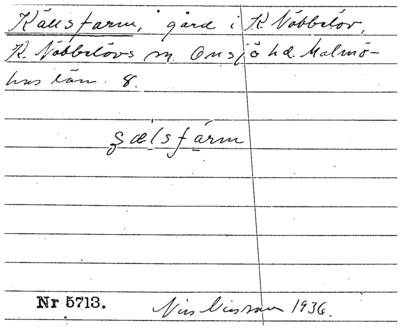 Källsfarm, gård i K. Nöbbelöv,
K. Nöbbelövs sn. Onsjö hd. Malmö-
hus län. 8.
sælsfárm
Nr 5713.
Nils Nilsson 1936.